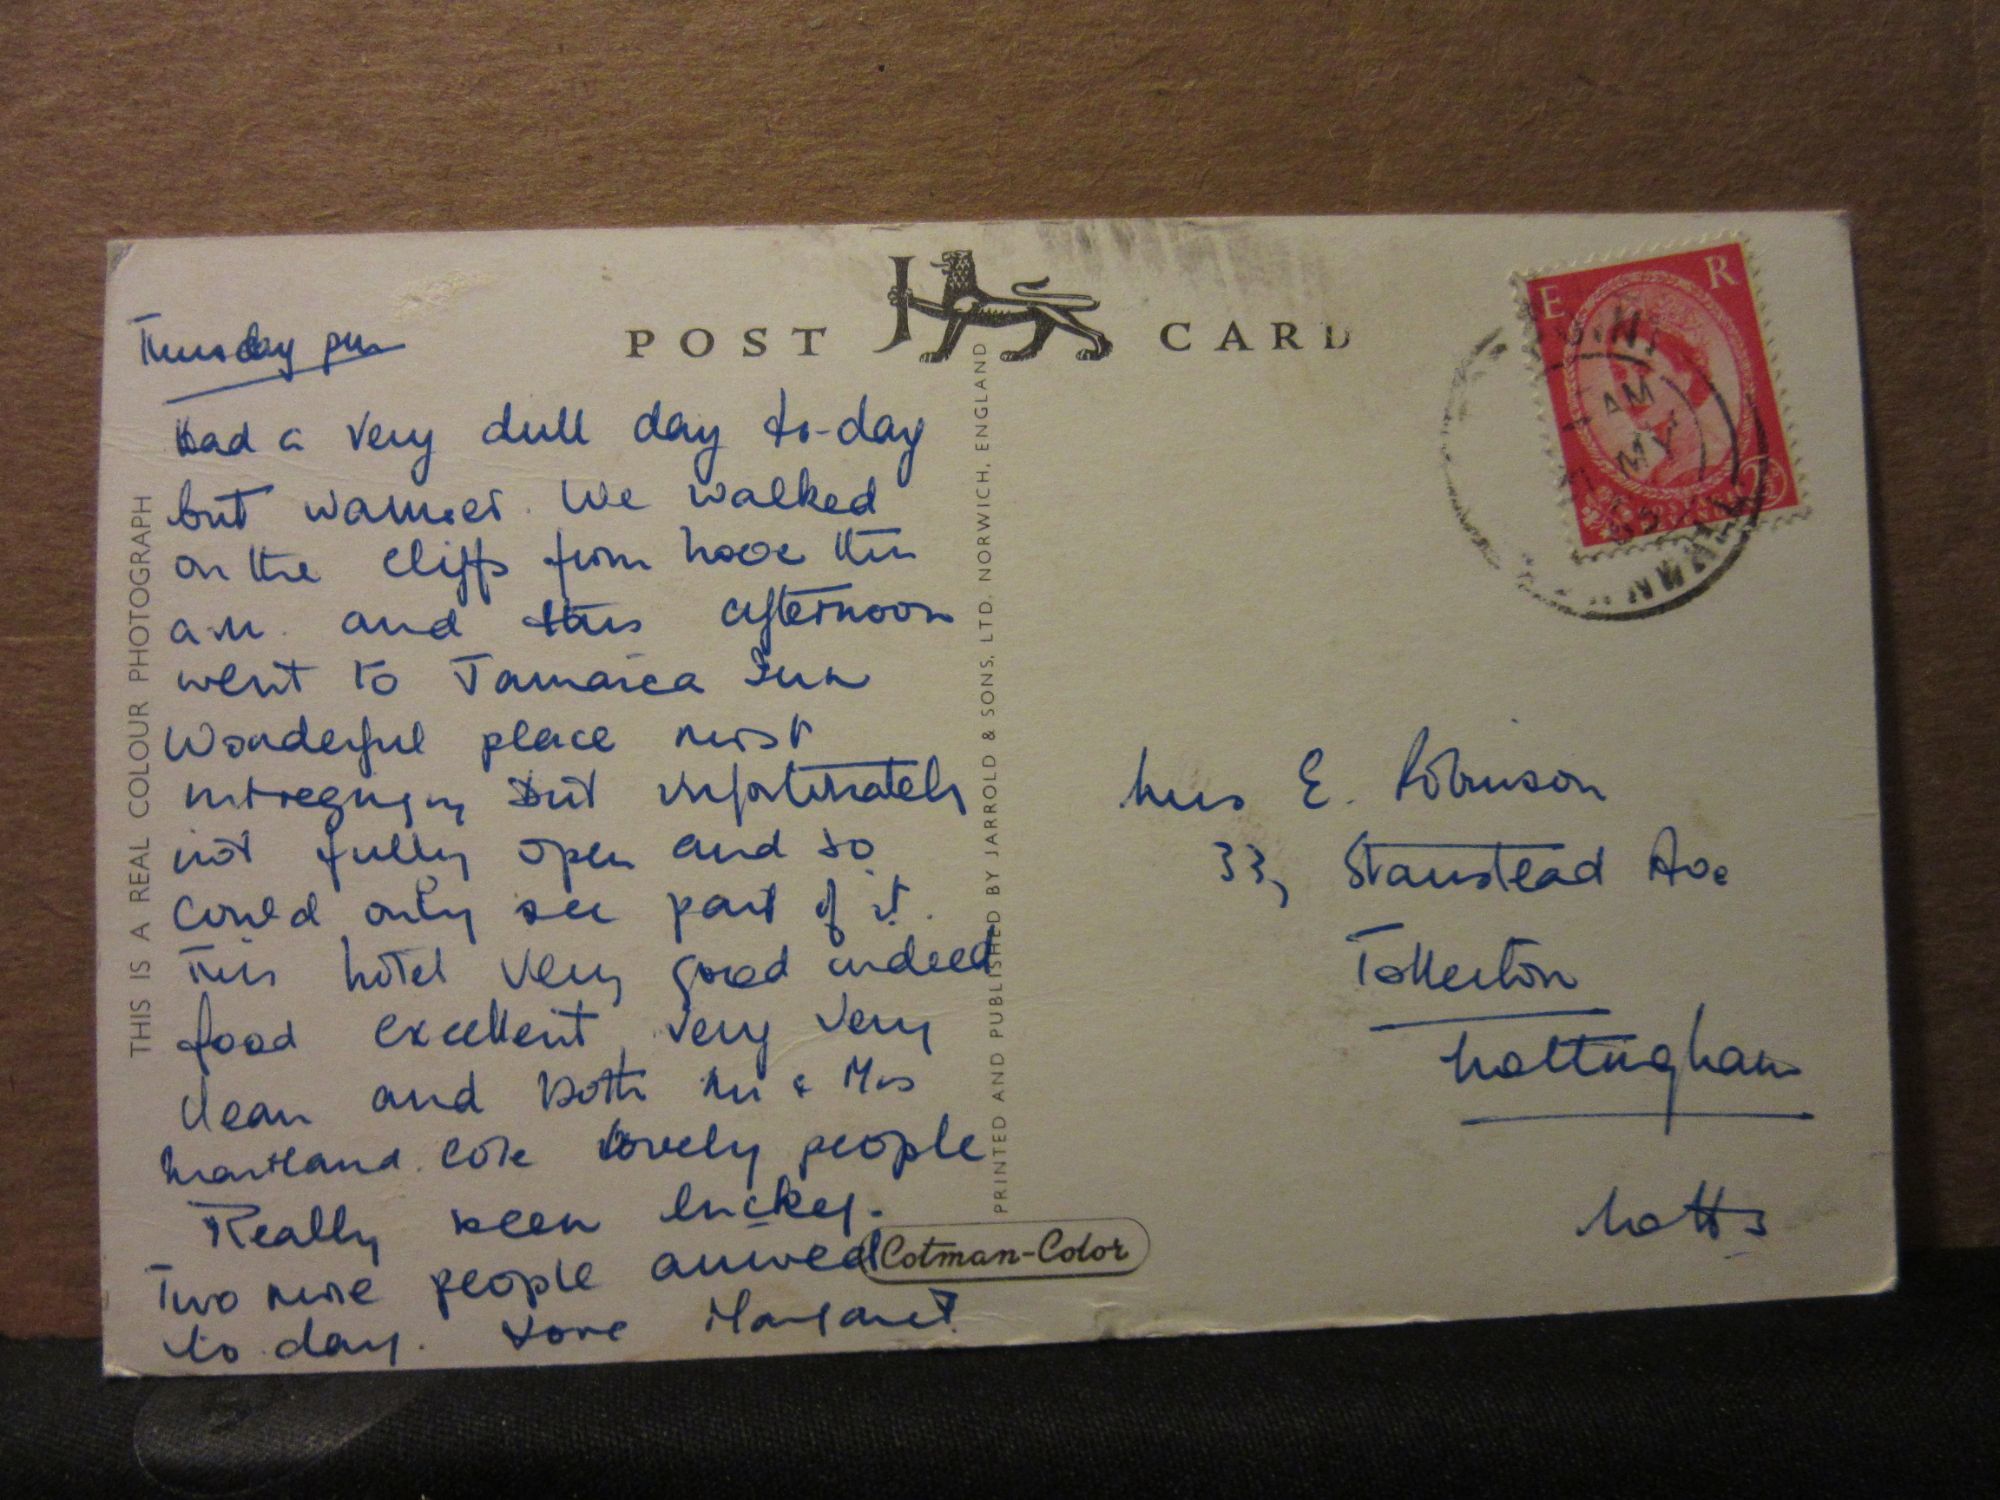 POST CARD
Thursday pm
Had a very dull day to-day
but warmer. We walked
on the cliffs from here this
a.m. and this afternoon
went to Jamaica Inn
Wonderful place most
intregueing but unfortunately
not fully open and so
could only see part of it.
This hotel very good indeed
food excellent very very
clean and both Mr & Mrs
Cole lovely people
Really been lucky.
Two more people arrived
to day. Love Margaret
THIS IS A REAL COLOUR PHOTOGRAPH
PRINTED AND PUBLISHED BY JARROLD & SONS, LTD, NORWICH, ENGLAND
Cotman-Color
E R
AM
MY
E. Robinson
33, Stanstead Ave
Tollerton
Nottingham
Notts